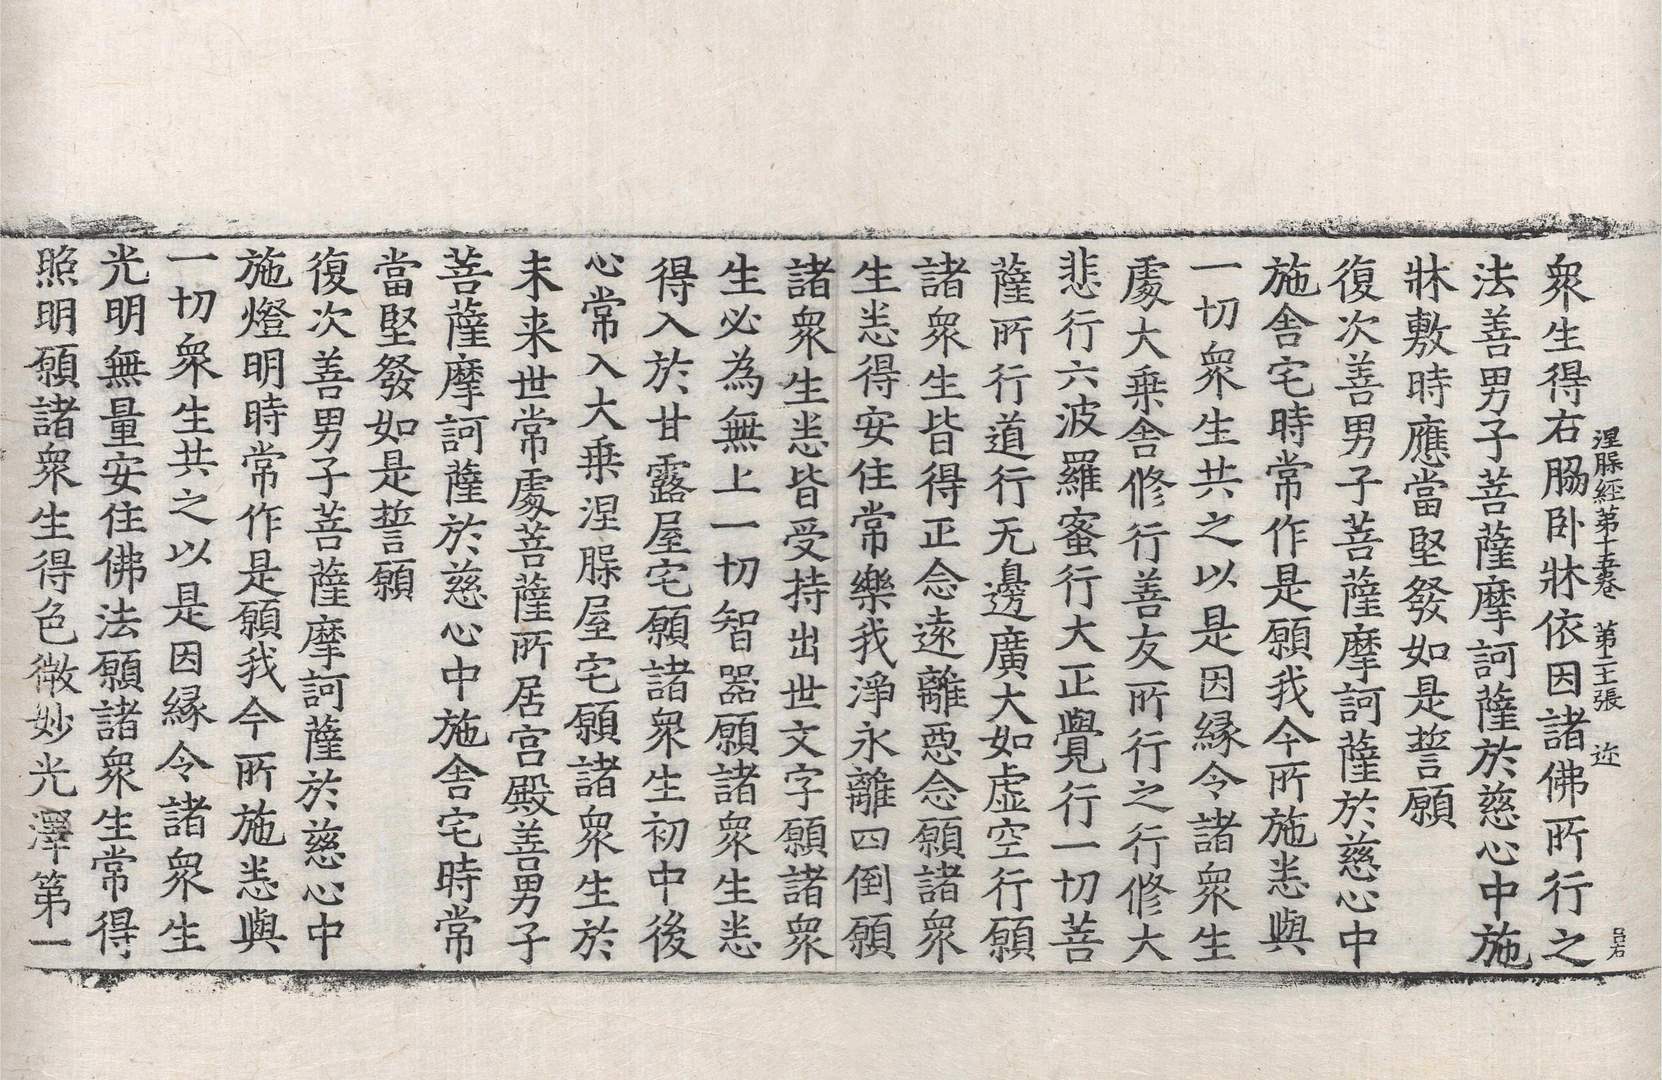 涅槃經第十五卷 第二十張 迩
衆生得右脇卧牀依因諸佛所行之
法善男子菩薩摩訶薩於慈心中施
牀敷時應當堅發如是誓願
復次善男子菩薩摩訶薩於慈心中
施舍宅時常作是願我今所施悉與
一切衆生共之以是因縁令諸衆生
處大乗舎修行善友所行之行修大
悲行六波羅蜜行大正覺行一切菩
薩所行道行无邊廣大如虚空行願
諸衆生皆得正念遠離惡念願諸衆
生悉得安住常樂我淨永離四倒願
諸衆生悉皆受持出世文字願諸衆
生必為無上一切智器願諸衆生悉
得入於甘露屋宅願諸衆生初中後
心常入大乗涅槃屋宅願諸衆生於
未来世常處菩薩所居宫殿善男子
菩薩摩訶薩於慈心中施舎宅時常
當堅發如是誓願
復次善男子菩薩摩訶薩於慈心中
施燈明時常作是願我今所施悉與
一切衆生共之以是因縁令諸衆生
光明無量安住佛法願諸衆生常得
照明願諸衆生得色微妙光澤第一